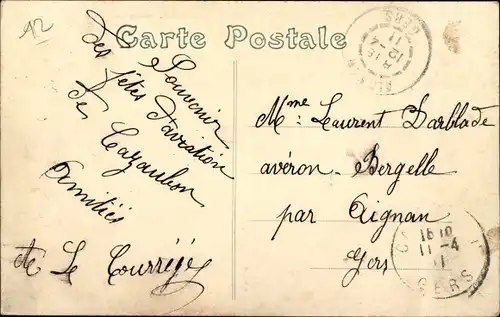 A2
Carte Postale
Souvenir
des fêtes d'aviation
de Cazaubon
Amitiés
de Le Courrégé
Mme Laurent Darblade
avéron-Bergelle
par Aignan
Gers
12-4
11
GERS
16 10
11-4
11
GERS